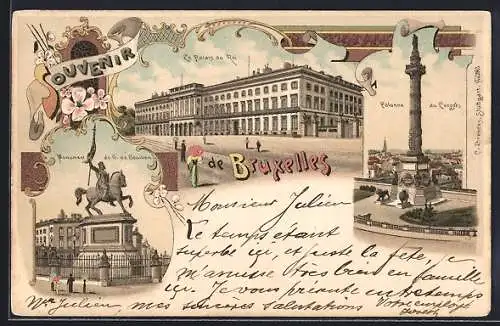 SOUVENIR
Le Palais du Roi
Colonne du Congrès
Monument de G. de Bouillon
de Bruxelles
Monsieur Julien
Le temps étant
superbe ici, et juste la fête, je
m'amuse très bien en famille
ici. Je vous présente entretemps
Mr Julien, mes sincères salutations
Votre employé
Joseph